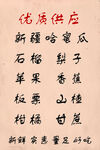 优质供应
新疆哈密瓜
石榴 梨子
苹果 香蕉
板栗 山楂
柑橘 甘蔗
新鲜实惠量足好吃